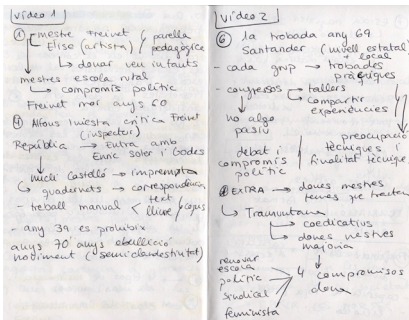 vídeo 1
① mestre Freinet
Elise (artista)
parella pedagògica
donar veu infants
mestres escola rural
compromís polític
Freinet mor anys 60
④ Alfons Iniesta critica Freinet
(inspector)
República → Entra amb
Enric Soler i Godes
nucli Castelló → impremta
quadernets → correspondència
- treball manual < text lliure
- any 39 es prohibix
anys 70 anys ebullició
moviment (semiclandestinitat)
vídeo 2
⑥ 1a trobada any 69
Santander (nivell estatal
+ local
- cada grup → trobades
pràctiques
- congressos → tallers
compartir
experiències
no algo
pasiu
debat i
compromís
polític
preocupació
tècniques i
finalitat tècniques
EXTRA → dones mestres
temes
Tramuntana
coeducatius
dones mestres
majoria
renovar
escola
polític
sindical
feminista
4 compromisos
dona